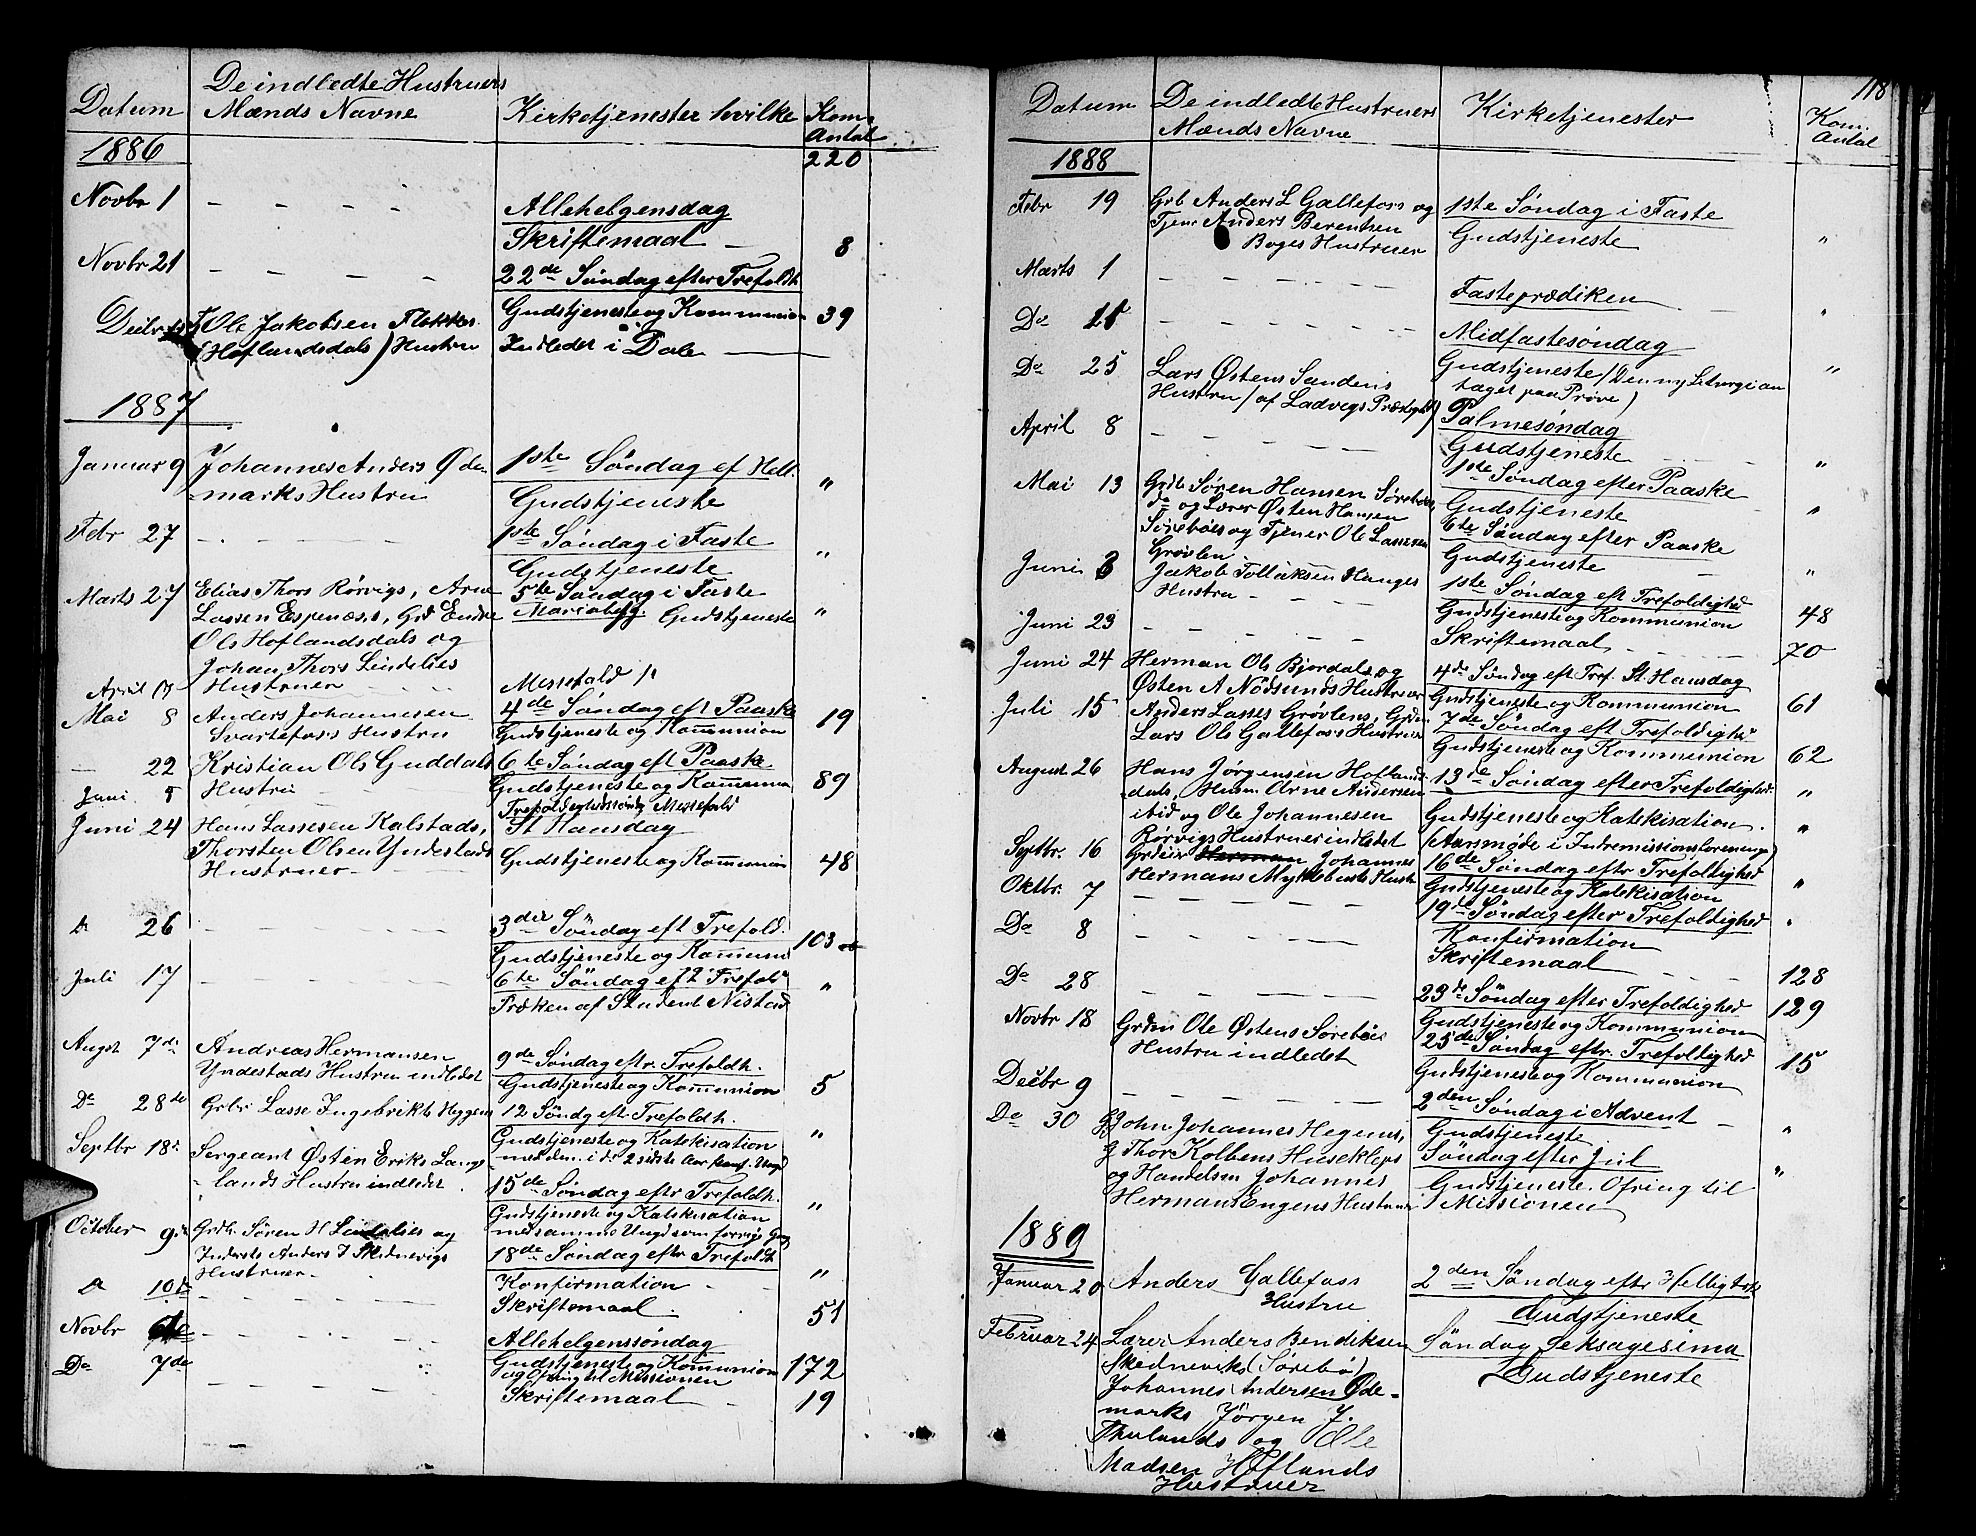 Datum
De indledte Hustruers
Mænds Navne
Kirketjenester hvilke
Kom.
Antal
1886
220
Novbr 1
Allehelgensdag
Skriftemaal
8
Novbr 21
22de Søndag efter Trefoldh
Gudstjeneste og Kommunion 39
Decbr
Ole Jakobsen Flekke
(Hoflandsdals) Hustru
Indledet i Dale
1887
Januar 9 Johannes Anders Øde
marks Hustru
1ste Søndag ef Hell.
Gudstjeneste "
Febr 27
1ste Søndag i Faste
Gudstjeneste "
Marts 27 Elias Thors Rørvigs, Arne
Lassen Espenæs, Grd Endre
Ols Hoflandsdals og
Johan Thors Lindelies
Hustruer
5te Søndag i Faste
Mariabesg. Gudstjeneste "
April 17
Messefald
Mai 8 Anders Johannesen
Svartefoss Hustru
4de Søndag eft Paaske
Gudstjeneste og Kommunion 19
22 Kristian Ols Guddals
Hustru
6te Søndag eft Paaske
Gudstjeneste og Kommunion 89
Juni 5
Trefoldighedssøndg Messefald
Juni 24 Hans Lassesen Kalstads,
Thorsten Olsen Yndestads
Hustruer
St Hansdag
Gudstjeneste og Kommunion 48
D 26
3die Søndag eft Trefold.
Gudstjeneste og Kommun 103
Juli 17
6te Søndag eft Trefold
Præken af Student Nistad "
Augst 7de Andreas Hermansen
Yndestads Hustru indledet
9de Søndag eftr. Trefoldh.
Gudstjeneste og Kommunion 5
Do 28de Grbr Lasse Ingebrikts Heggens
12 Søndg eft. Trefoldh.
Gudstjeneste og Katekisation "
med den i de 2 sidste Aar konf. Ungd
Septbr 18de Sergeant Østen Eriks Lange
lands Hustru indledet
15de Søndag eftr Trefoldh.
Gudstjeneste og Katekisation "
med samme Ungd som forrige Gang
October 9de Grdbr Søren H Lindelies og
Inderste Anders J Skidnevigs
Hustruer
18de Søndag eftr Trefoldh
Konfirmation "
D 10de
Skriftemaal. 51
Novbr 6te
Allehelgenssøndag
Gudstjeneste og Kommunion 172
og Ofring til Missionen
Do 7de
Skriftemaal 19
118
Datum
De indledte Hustruers
Mænds Navne
Kirketjenester
Kom.
Antal
1888
Febr 19 Grb Anders L Gallefoss og
Tjene Anders Berentsen
Boges Hustruer
1ste Søndag i Faste
Gudstjeneste "
Marts 1
Fasteprædiken "
Do 11
Midfastesøndag
Gudstjeneste (Den ny Liturgi an
taget paa Prøve) "
Do 25 Lars Østens Sandens
Hustru (af Ladvigs Præstegjeld)
Palmesøndag
Gudstjeneste "
April 8
1ste Søndag efter Paaske
Gudstjeneste "
Mai 13 Grdb Søren Hansen Sørebøes
og Lærer Østen Hansen
Sørebøes og Tjener Ole Lassesen
Grøvlen
6te Søndag efter Paaske
Gudstjeneste "
Juni 3 Jakob Tollaksen Hanges
Hustru
1ste Søndag eft Trefoldighed
Gudstjeneste og Kommunion 48
Juni 23
Skriftemaal 70
Juni 24 Herman Ols Bjordals og
Østen A Nødsunds Hustruer
4de Søndag eft Tref. St. Hansdag
Gudstjeneste og Kommunion 61
Juli 15 Anders Lasses Grøvlens, Grdm
Lars Ols Gallefoss Hustruer
7de Søndag eft Trefoldighed
Gudstjeneste og Kommunion 62
August 26 Hans Jørgensen Hoflands
dals, Husm. Arne Andersen
ibid og Ole Johannesen
Rørvigs Hustruer indledet
13de Søndag efter Trefoldighed "
Gudstjeneste og Katekisation. "
(Aarsmøde i Indremissionsforeninge)
Septbr. 16 Grdeier Herman Johannes
Hermans Myklebusts Hustr
16de Søndag eftr Trefoldighed
Gudstjeneste og Katekisation "
Oktbr. 7
19de Søndag efter Trefoldighed
Konfirmation "
Do 8
Skriftemaal 128
Do 28
23de Søndag efter Trefoldighed
Gudstjeneste og Kommunion 129
Novbr 18 Grdm Ole Østens Sørebøes
Hustru indledet
25de Søndag eftr. Trefoldighed
Gudstjeneste og Kommunion 15
Decbr 9
2den Søndag i Advent
Gudstjeneste "
Do 30 G John Johannes Hegens,
G Thor Kolbens Husekleps
og Handelsm Johannes
Hermans Engens Hustruer
Søndag efter Jul
Gudstjeneste. Ofring til "
Missionen
1889
Januar 20 Anders Gallefoss
Hustru
2den Søndag efter Helligtrek
Gudstjeneste
Februar 24 Lærer Anders Bendiksen
Skedneviks (Sørebø)
Johannes Andersen Øde-
marks Jørgen J.
Thulands og Ole
Madsen Hoflands
Hustruer
Søndag Seksagesima
Gudstjeneste